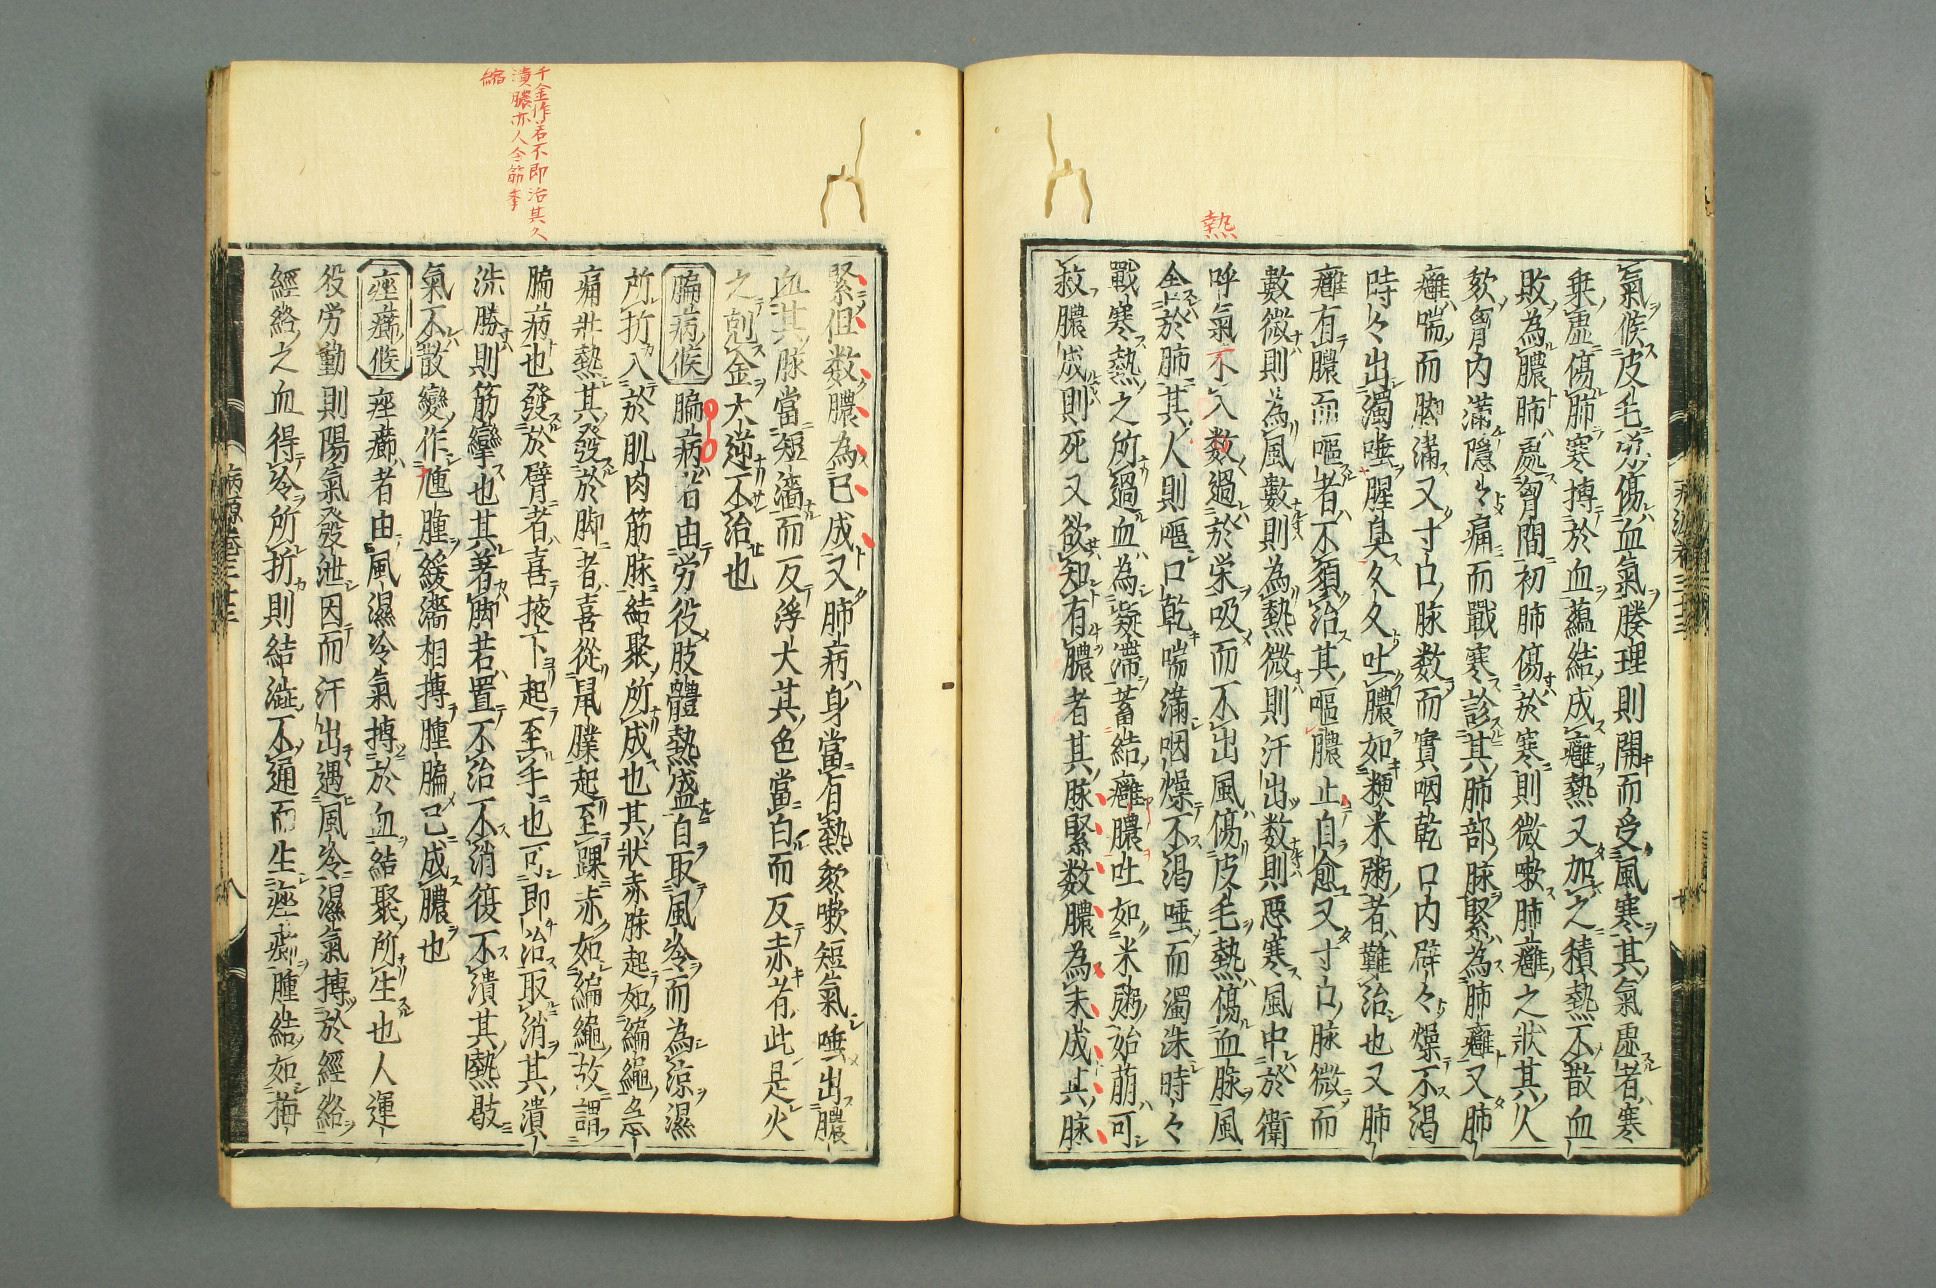 熱
氣候皮毛勞傷血氣腠理則開而受風寒其氣虛者寒
乗虛傷肺寒搏於血蘊結成癰熱又加之積熱不散血
敗為膿肺處胷間初肺傷於寒則微嗽肺癰之狀其人
欬胷内滿隱々痛而戰寒診其肺部脉緊為肺癰又肺
癰喘而胷滿又寸口脉数而實咽乾口内辟々燥不渇
時々出濁唾腥臭久久吐膿如粳米粥者難治也又肺
癰有膿而嘔者不須治其嘔膿止自愈又寸口脉微而
數微則為風數則為熱微則汗出数則惡寒風中於衛
呼氣不入数過於栄吸而不出風傷皮毛熱傷血脉風
舎於肺其人則嘔口乾喘滿咽燥不渇唾而濁沫時々
戰寒熱之所過血為凝滯蓄結癰膿吐如米粥始萠可
救膿成則死又欲知有膿者其脉緊数膿為未成其脉
千金作若不即治其久
潰膿亦人令筋攣
縮
緊但数膿為已成又肺病身當有熱欬嗽短氣唾出膿
血其脉當短濇而反浮大其色當白而反赤者此是火
之剋金大逆不治也
腨病候 腨病者由労役肢體熱盛自取風冷而為涼濕
所折入於肌肉筋脉結聚所成也其狀赤脉起如編繩急
痛壯熱其發於脚者喜從𩩲起至踝赤如編繩故謂
腨病也發於臂者喜掖下起至手也可即治取消其潰
洗勝則筋攣也其著脚若置不治不消復不潰其熱歇
氣不散變作尰腫緩濡相搏腫腨已成膿也
痤癤候 痤癤者由風濕冷氣搏於血結聚所生也人運
役労動則陽氣發泄因而汗出遇風冷濕氣搏於經絡
經絡之血得冷所折則結澁不通而生痤癤腫結如梅
病源巻三十三
八